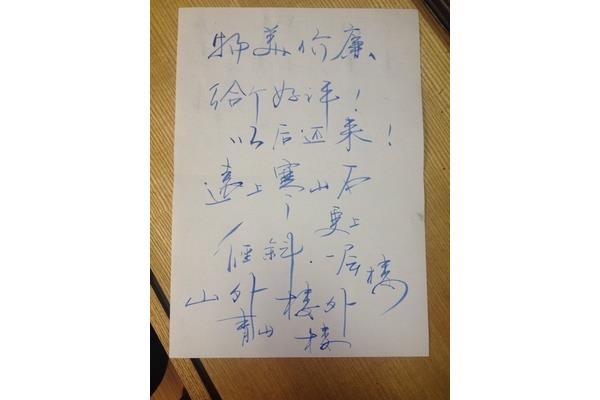 物美价廉、
给个好评！
以后还来！
远上寒山石
径斜.
更上
一层楼
山外
青山
楼外
楼